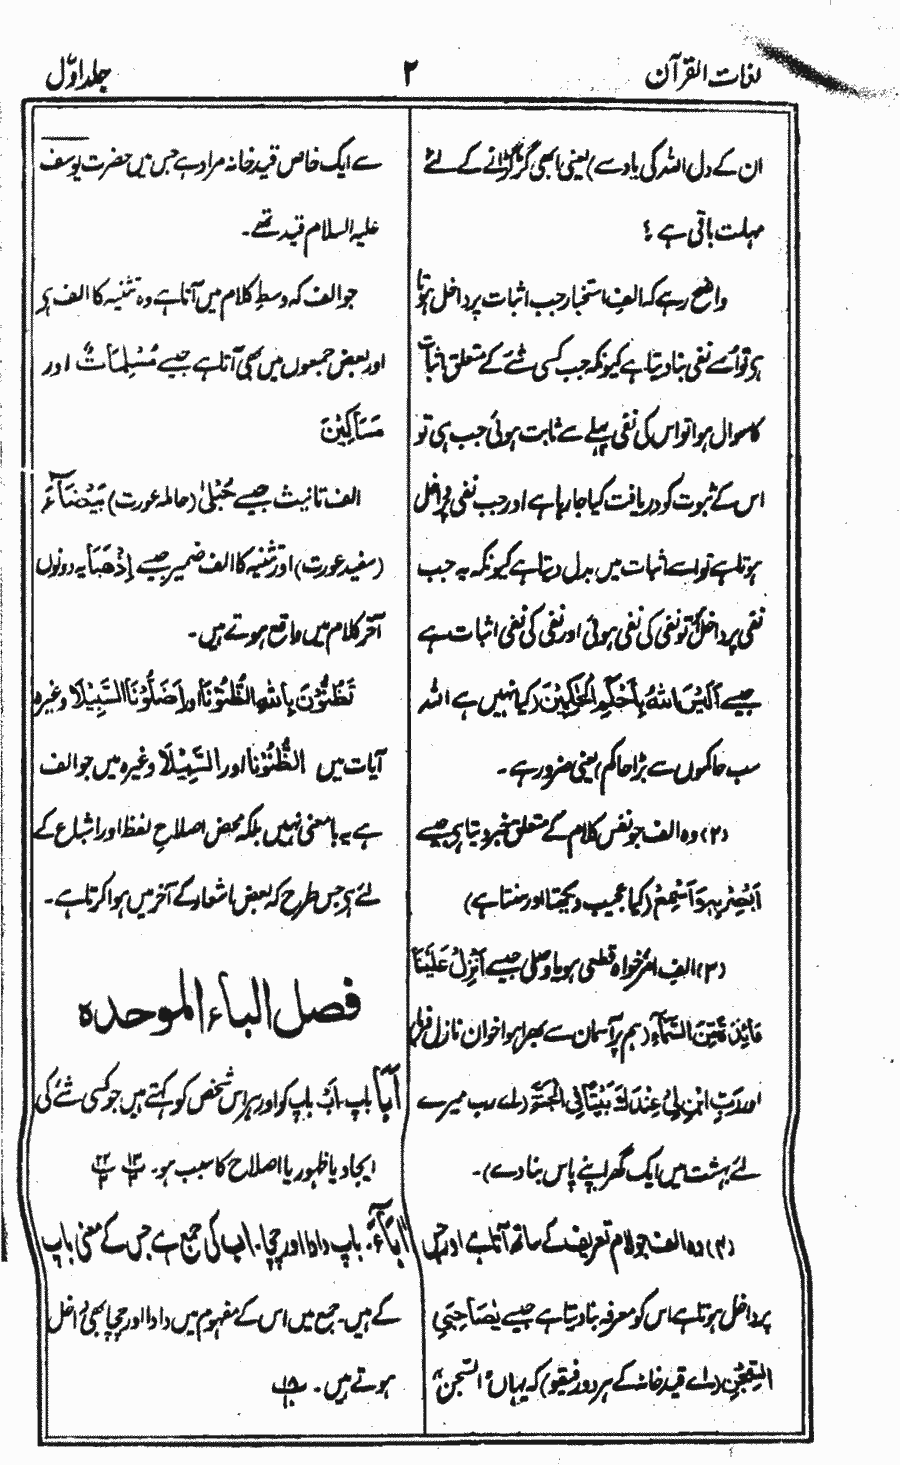 لغات القرآن ٢ جلد اوّل
ان کے دل اللہ کی یاد سے) یعنی ابھی گڑگڑانے کے لئے
مہلت باقی ہے ؟
واضح رہے کہ الف استخبار جب اثبات پر داخل ہوتا
ہے تو اُسے نفی بنا دیتا ہے کیونکہ جب کسی شے کے متعلق اثبات
کا سوال ہوا تو اس کی نفی پہلے سے ثابت ہوئی جب ہی تو
اس کے ثبوت کو دریافت کیا جا رہا ہے اور جب نفی پر داخل
ہوتا ہے تو اسے اثبات میں بدل دیتا ہے کیونکہ یہ جب
نفی پر داخل ہو تو نفی کی نفی ہوئی اور نفی کی نفی اثبات ہے
جیسے اَلَیْسَ اللّٰهُ بِاَحْکَمِ الْحٰکِمِیْنَ (کیا نہیں ہے اللہ
سب حاکموں سے بڑا حاکم) یعنی ضرور ہے۔
(۲) وہ الف جو نفس کلام کے متعلق خبر دیتا ہے جیسے
اَبْصِرْ بِهٖ وَ اَسْمِعْ (کیا عجیب دیکھتا اور سنتا ہے)
(۳) الف امر خواہ قطعی ہو یا وصلی جیسے اَنْزِلْ عَلَیْنَا
مَائِدَةً مِّنَ السَّمَآءِ (ہم پر آسمان سے بھرا ہوا خوان نازل فرما)
اور رَبِّ ابْنِ لِیْ عِنْدَكَ بَیْتًا فِی الْجَنَّةِ (اے رب میرے
لئے بہشت میں ایک گھر اپنے پاس بنا دے)۔
(۴) وہ الف جو لام تعریف کے ساتھ آتا ہے اور جس
پر داخل ہوتا ہے اس کو معرفہ بنا دیتا ہے جیسے یٰصَاحِبَیِ
السِّجْنِ (اے قید خانہ کے ہر دو رفیقو) کہ یہاں "السجن"
سے ایک خاص قید خانہ مراد ہے جس میں حضرت یوسف
علیہ السلام قید تھے۔
جو الف کہ وسطِ کلام میں آتا ہے وہ تثنیہ کا الف ہے
اور بعض جمعوں میں بھی آتا ہے جیسے مُسْلِمَاتٌ اور
مَسَاکِیْنَ
الف تانیث جیسے حُبْلیٰ (حاملہ عورت) بَیْضَآءُ
(سفید عورت) اور تثنیہ کا الف ضمیر جیسے اِذْهَبَا یہ دونوں
آخر کلام میں واقع ہوتے ہیں۔
تَظُنُّوْنَ بِاللّٰهِ الظُّنُوْنَا اور اَضَلُّوْنَا السَّبِیْلَا وغیرہ
آیات میں الظُّنُوْنَا اور السَّبِیْلَا وغیرہ میں جو الف
ہے یہ بامعنی نہیں بلکہ محض اصلاحِ لفظ اور اشباع کے
لئے ہے جس طرح کہ بعض اشعار کے آخر میں ہوا کرتا ہے۔
فصل الباء الموحدہ
اَبًا باپ۔ اَبٌ باپ کو اور ہر اس شخص کو کہتے ہیں جو کسی شئے کی
ایجاد یا ظہور یا اصلاح کا سبب ہو۔
اٰبَآءُ۔ باپ دادا اور چچا۔ اب کی جمع ہے جس کے معنی باپ
کے ہیں۔ جمع میں اس کے مفہوم میں دادا اور چچا بھی داخل
ہوتے ہیں۔